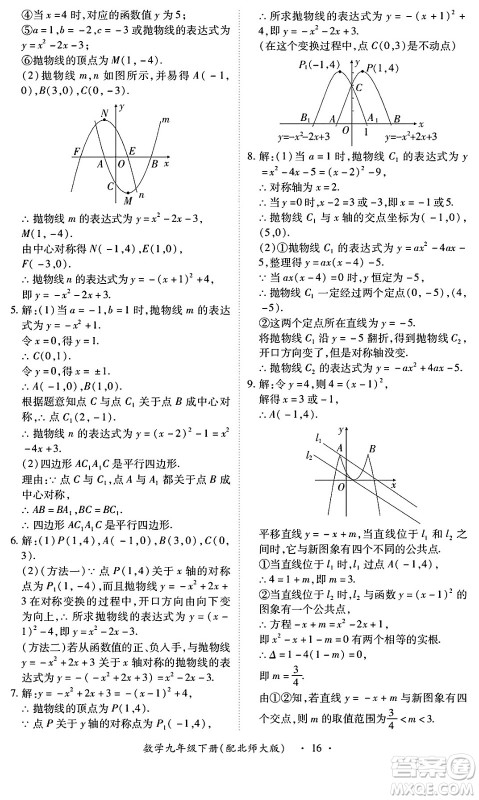 ④当 x=4 时,对应的函数值 y 为 5;
⑤a=1,b=-2,c=-3;
⑥抛物线的顶点为 M(1,-4).
(2)抛物线 m,n 如图所示,并易得 A(-1,0),B(3,0),C(0,-3).
y
N
m
F
A
O
E
B
x
C
M
n
∴抛物线 m 的表达式为 y=x²-2x-3,
M(1,-4).
由中心对称得 N(-1,4),E(1,0),
F(-3,0).
∴抛物线 n 的表达式为 y=-(x+1)²+4,
即 y=-x²-2x+3.
5.解:(1)当 a=-1,b=1 时,抛物线的表达
式为 y=-x²+1.
令 x=0,得 y=1.
∴C(0,1).
令 y=0,得 x=±1.
∴A(-1,0),B(1,0).
根据题意知点 C 与点 C₁ 关于点 B 成中
心对称,∴点 C₁(2,-1).
∴抛物线 C₁ 的表达式为 y=(x-2)²-1=x²
-4x+3.
(2)四边形 AC₁A₁C 是平行四边形.
理由:∵点 C 与 C₁,点 A 与 A₁ 都关于点 B 成
中心对称,
∴AB=BA₁,BC=BC₁.
∴四边形 AC₁A₁C 是平行四边形.
6.解:(1)P(1,4),A(-1,0),B(3,0),C(0,
3).
(2)(方法一)∵点 P(1,4)关于 x 轴的对称
点为(1,-4),而且抛物线 y=-x²+2x+
3 在对称变换的过程中,开口方向由向下变
为向上,∴所求抛物线的表达式为 y=(x-
1)²-4,即 y=x²-2x-3.
(方法二)若从函数值的正、负入手,与抛物
线 y=-x²+2x+3 关于 x 轴对称的抛物线的
表达式为-y=-x²+2x+3,即 y=x²-2x-3.
7.解:(1)抛物线 y=-x²+2x+3=-(x-1)²
+4,∴点 P(1,4)关于 y 轴的对称点 P₁(-1,4).
∴所求抛物线的表达式为 y=-(x+1)²+
4,即 y=-x²-2x+3.
(在这个变换过程中,点 C 是不动点)
y
P₁(-1,4)
P(1,4)
C
B₁
O
1
x
y=-x²-2x+3
y=-x²+2x+3
8.解:(1)当 a=1 时,抛物线 C₁ 的表达式为 y
=x²-4x-5=(x-2)²-9,
∴对称轴为 x=2.
∴当 y=0 时,x-2=3 或-3,即 x=-1 或 5.
∴抛物线 C₁ 与 x 轴的交点坐标为(-1,0),
(5,0).
(2)①抛物线 C₁ 的表达式为 y=ax²-4ax-
5,整理得 y=ax(x-4)-5.
∵当 ax(x-4)=0 时,y 恒定为-5,
∴抛物线 C₁ 一定经过两个定点(0,-5),(4,
-5).
②这两个定点所在直线为 y=-5.
将抛物线 C₁ 沿 y=-5 翻折,得到抛物线 C₂,
开口方向变了,但是对称轴没变.
∴抛物线 C₂ 的表达式为 y=-ax²+4ax-5.
9.解:令 y=4,则 4=(x-1)²,
∴A(-1,4).
y
l₁
l₂
A
B
O
x
平移直线 y=-x+m 知,直线位于 l₁ 和 l₂
时,它与新图象有三个不同的公共点.
①当直线位于 l₁ 时,此时 l₁ 过点 A(-1,4),
∴4=1+m,即 m=3.
②当直线位于 l₂ 时,此时 l₂ 与函数 y=x² 的
图象有一个公共点,
∴方程-x+m=x²,
即 x²+x-m=0 有两个相等的实根.
∴Δ=1+4m=0,
即 m=-3/4.
由①②知,若直线 y=-x+m 与新图象只有三个公共点,
则 m 的取值为-3/4或 3.
数学九年级下册(配北师大版) ·16·